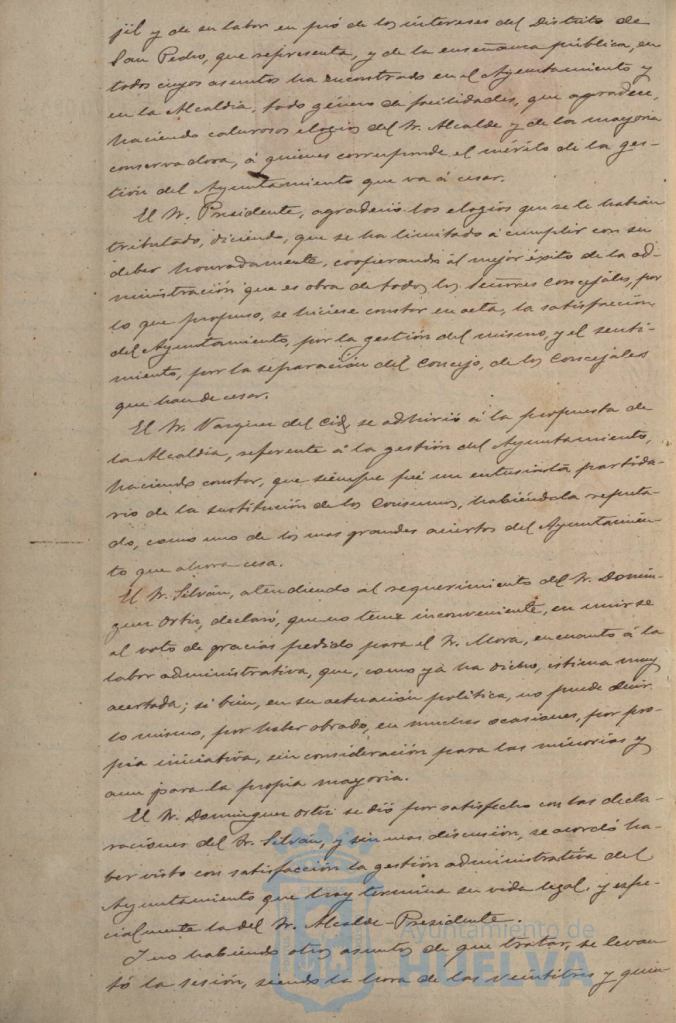 jil y de su labor en pró de los intereses del Distrito de
San Pedro, que representa, y de la enseñanza pública, en
todos cuyos asuntos ha encontrado en el Ayuntamiento y
en la Alcaldía, todo género de facilidades, que agradece,
haciendo calurosos elogios del Sr. Alcalde y de la mayoria
conservadora, á quienes corresponde el mérito de la ges-
tión del Ayuntamiento que va á cesar.
El Sr. Presidente, agradeció los elogios que se le habian
tributado, diciendo, que se ha limitado á cumplir con su
deber honradamente, cooperando al mejor éxito de la ad-
ministración que es obra de todos los Señores Concejales, por
lo que propuso, se hiciese constar en acta, la satisfacción
del Ayuntamiento, por la gestión del mismo, y el senti-
miento, por la separación del Concejo, de los Concejales
que han de cesar.
El Sr. Vazquez del Cid, se adhirió á la propuesta de
la Alcaldía, referente á la gestión del Ayuntamiento,
haciendo constar, que siempre fué un entusiasta partida-
rio de la sustitución de los Consumos, habiéndola reputa-
do, como uno de los mas grandes aciertos del Ayuntamien-
to que ahora cesa.
El Sr. Silván, atendiendo al requerimiento del Sr. Domin-
guez Ortiz, declaró, que no tenia inconveniente, en unirse
al voto de gracias pedido para el Sr. Mora, en cuanto á la
labor administrativa, que, como ya ha dicho, estima muy
acertada; si bien, en su actuación politica, no puede decir
lo mismo, por haber obrado, en muchas ocasiones, por pro-
pia iniciativa, sin consideración para las minorias y
aun para la propia mayoria.
El Sr. Dominguez Ortiz se dió por satisfecho con las decla-
raciones del Sr. Silván, y sin mas discusión, se acordó ha-
ber visto con satisfacción la gestión administrativa del
Ayuntamiento que hoy termina su vida legal, y espe-
cialmente la del Sr. Alcalde-Presidente.
Y no habiendo otros asuntos de que tratar, se levan
tó la sesión, siendo la hora de las veintitres y quin
Ayuntamiento de
HUELVA